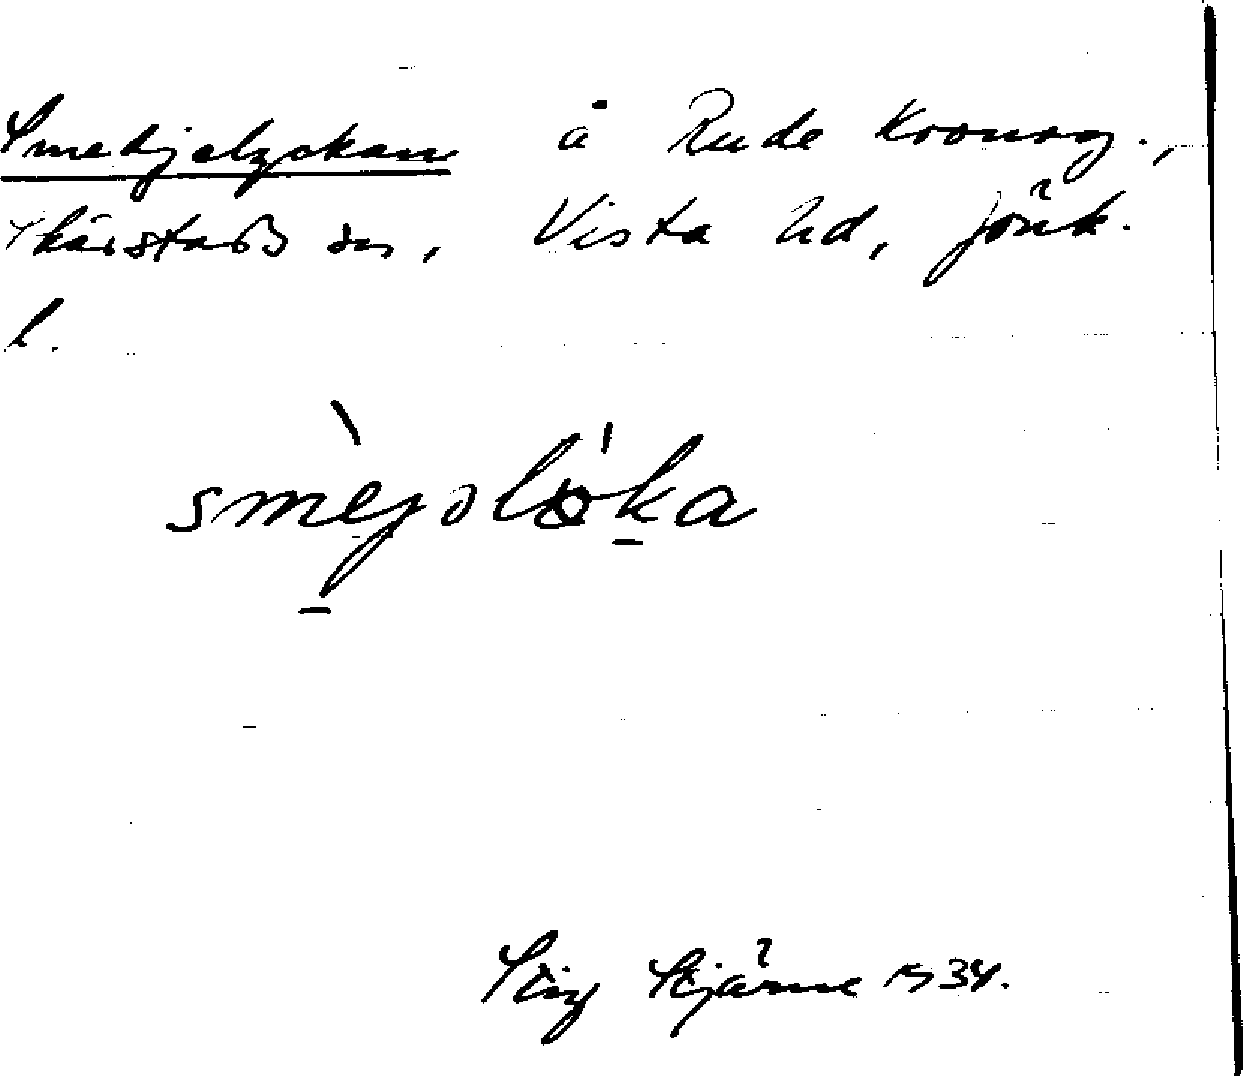 Smedjelyckan å Rude Kronog.,
Skärstads sn, Vista hd, Jönk.
l.
smèjəlö́ka
Stig Stjärne 1934.